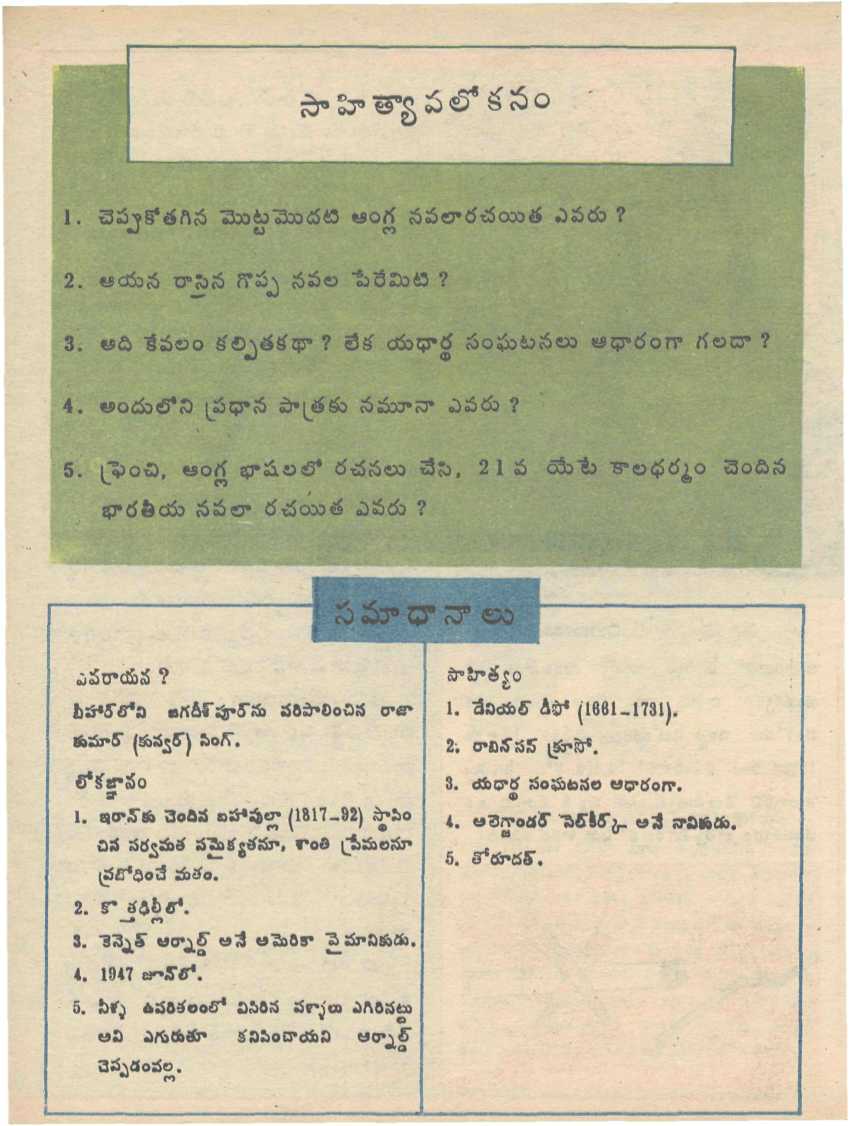 సాహిత్యావలోకనం
1. చెప్పుకోతగిన మొట్టమొదటి ఆంగ్ల నవలారచయిత ఎవరు ?
2. ఆయన రాసిన గొప్ప నవల పేరేమిటి ?
3. అది కేవలం కల్పితకథా ? లేక యధార్థ సంఘటనలు ఆధారంగా గలదా ?
4. అందులోని ప్రధాన పాత్రకు నమూనా ఎవరు ?
5. ఫ్రెంచి, ఆంగ్ల భాషలలో రచనలు చేసి, 21 వ యేటే కాలధర్మం చెందిన
భారతీయ నవలా రచయిత ఎవరు ?
సమాధానాలు
ఎవరాయన ?
బీహార్‌లోని జగదీశ్‌పూర్‌ను పరిపాలించిన రాజా
కుమార్ (కున్వర్) సింగ్.
లోకజ్ఞానం
1. ఇరాన్‌కు చెందిన బహావుల్లా (1817-92) స్థాపిం
చిన సర్వమత సమైక్యతనూ, శాంతి ప్రేమలనూ
ప్రబోధించే మతం.
2. కొత్తఢిల్లీలో.
3. కెన్నెత్ ఆర్నాల్డ్ అనే అమెరికా వైమానికుడు.
4. 1947 జూన్‌లో.
5. నీళ్ళ ఉపరితలంలో విసిరిన పళ్ళాలు ఎగిరినట్టు
అవి ఎగురుతూ కనిపించాయని ఆర్నాల్డ్
చెప్పడంవల్ల.
సాహిత్యం
1. డేనియల్ డీఫో (1661-1731).
2. రాబిన్‌సన్ క్రూసో.
3. యధార్థ సంఘటనల ఆధారంగా.
4. అలెగ్జాండర్ సెల్‌కిర్క్ అనే నావికుడు.
5. తోరూదత్.